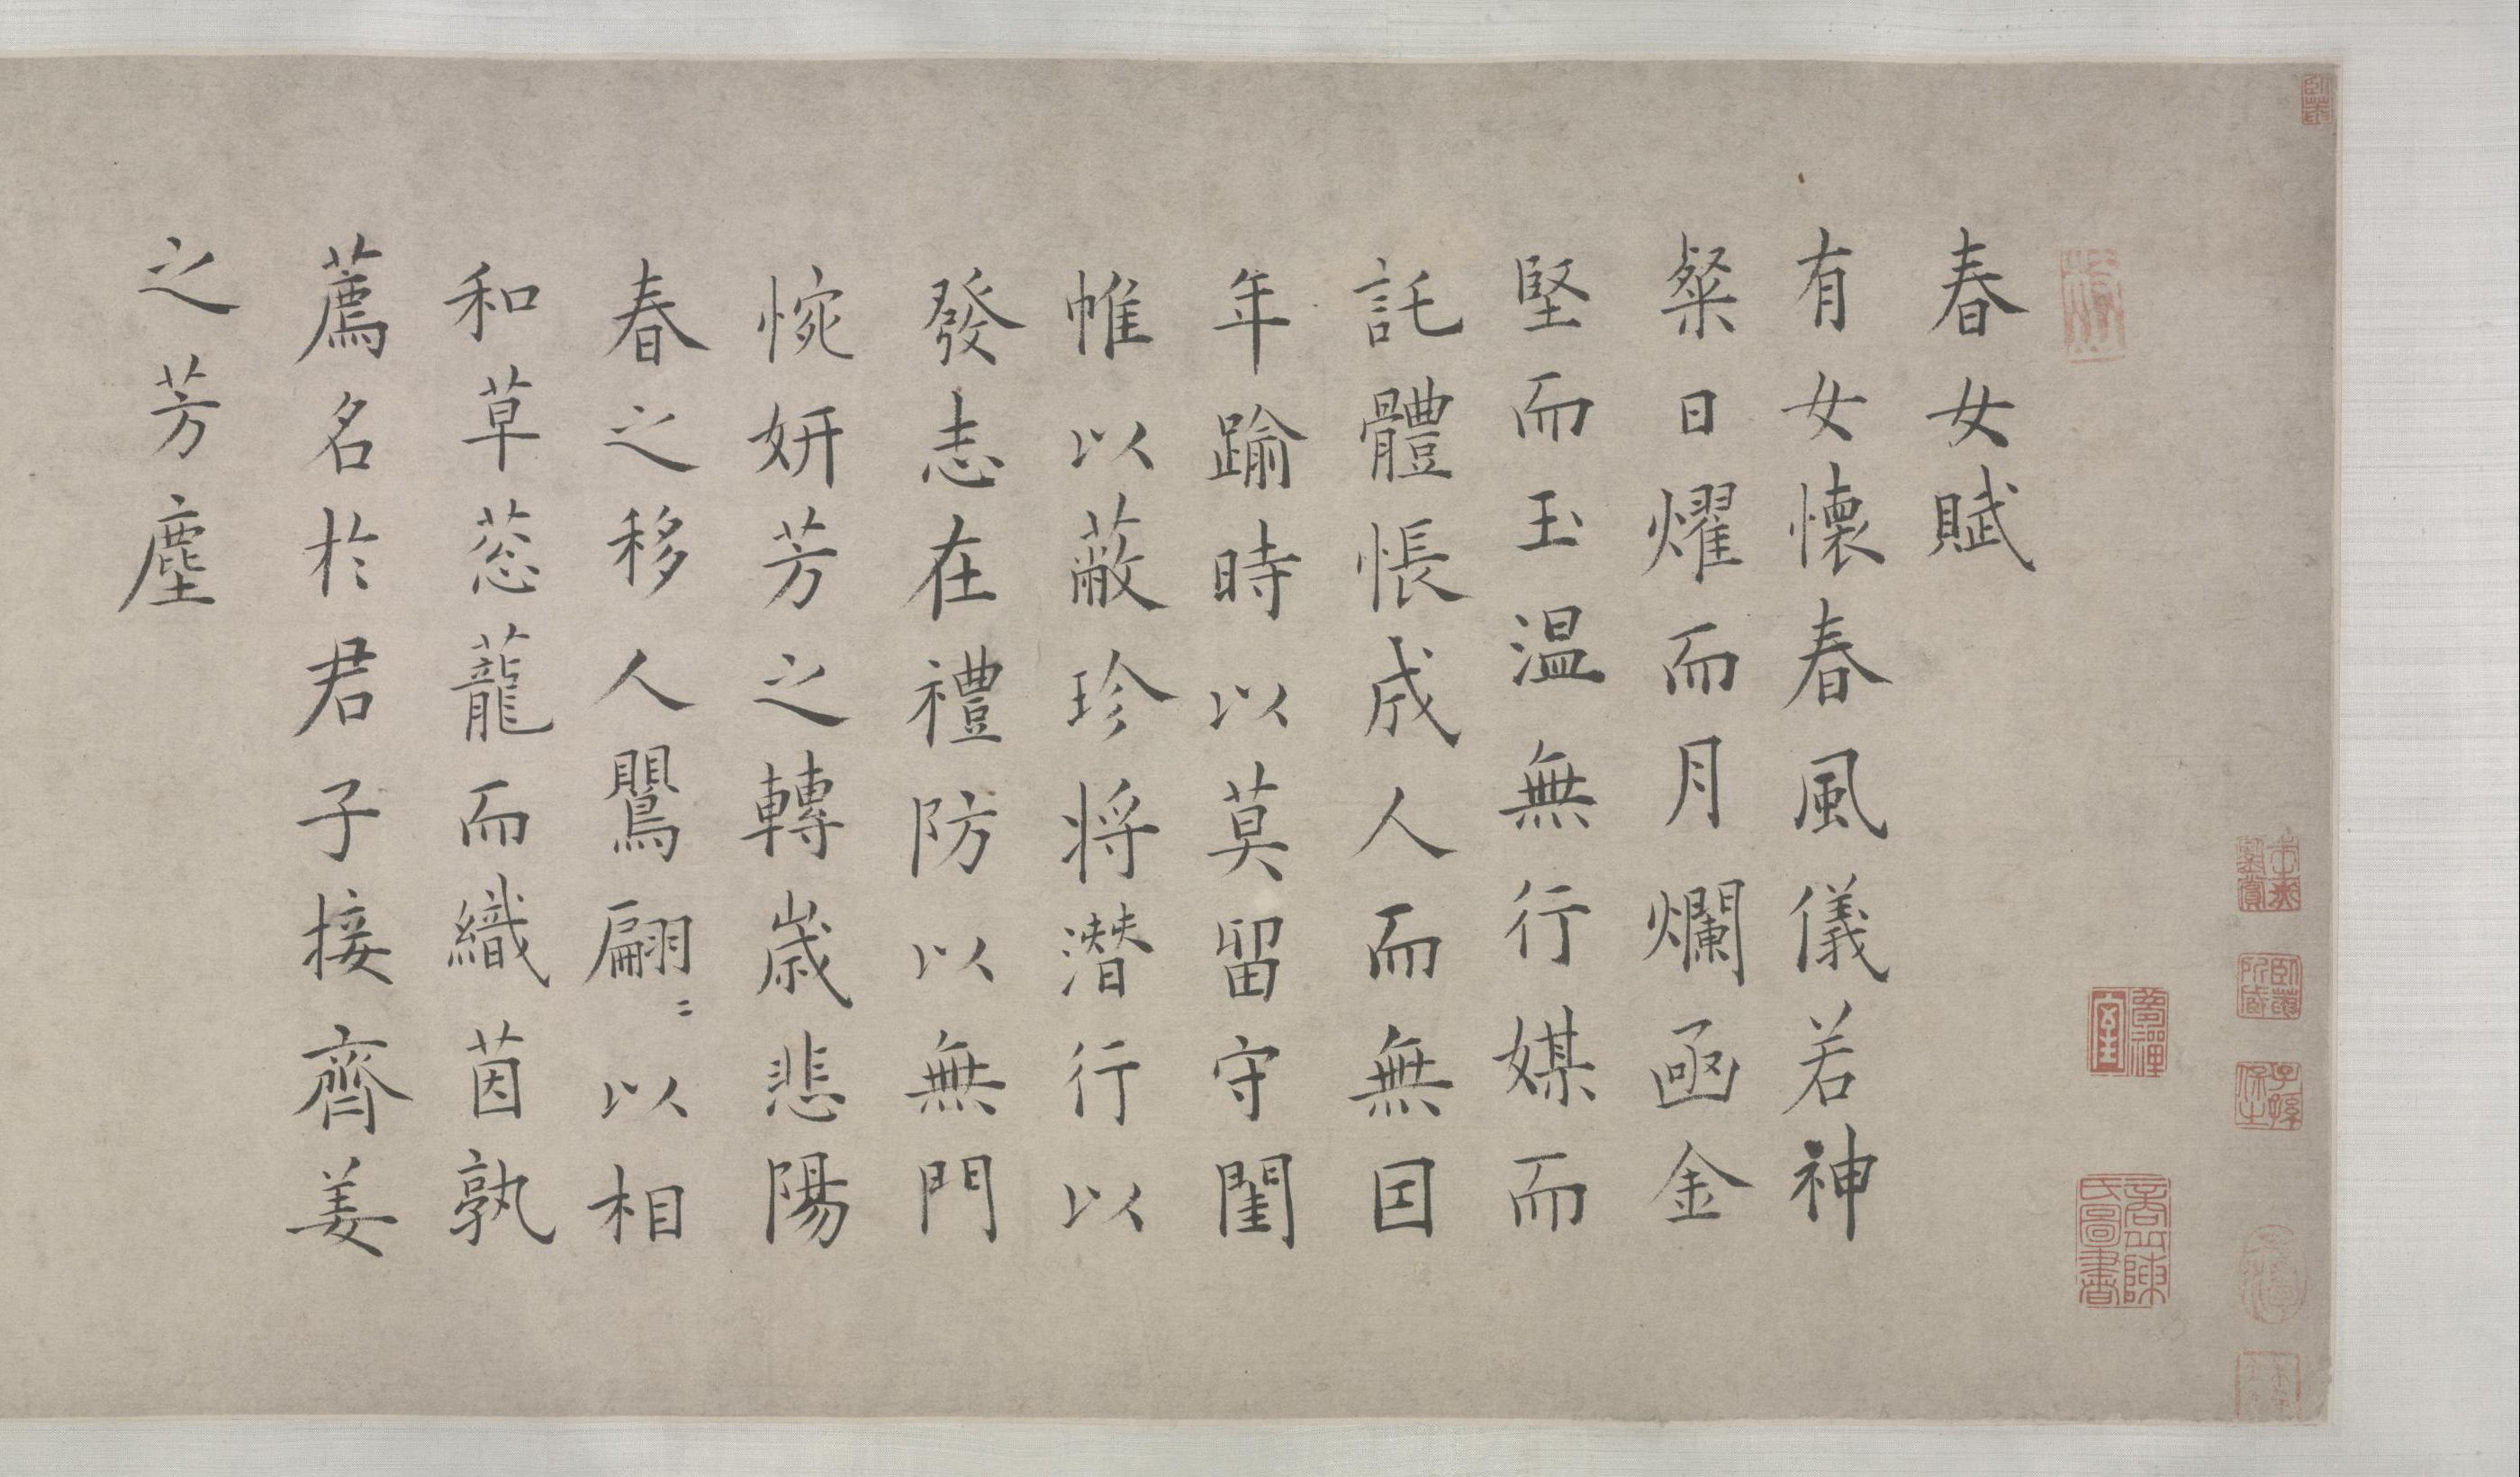 春女賦
有女懷春風儀若神
粲日燿而月爛函金
堅而玉温無行媒而
託體悵成人而無因
年踰時以莫留守閨
帷以蔽珍将潜行以
發志在禮防以無門
惋妍芳之轉歲悲陽
春之移人鸎翩〻以相
和草蓯蘢而織茵孰
薦名於君子接齊姜
之芳塵